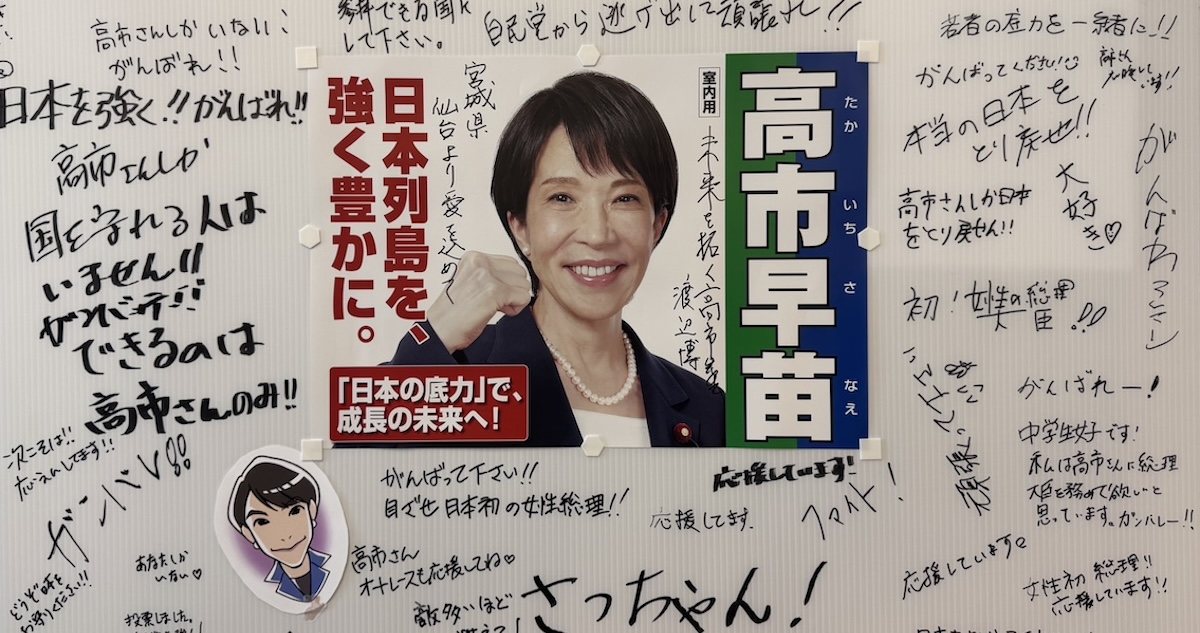 高市さんしかいない、
がんばれ!!
日本を強く!!がんばれ!!
高市さんしか
国を守れる人は
いません!!
できるのは
高市さんのみ!!
次こそは!!
応えんしてます!!
ガンバレ!!
あなたしか
いない♡
投票しました。
して下さい。
自民党から逃げ出して頑張れ!!
日本列島を、
強く豊かに。
宮城県
仙台より愛を込めて
「日本の底力」で、
成長の未来へ!
室内用
未来を拓く高市早苗
渡辺博
高市早苗
たか いち さ なえ
がんばって下さい!!
目ざせ日本初の女性総理!!
高市さん
オートレースも応援してね♡
敵多いほど
さっちゃん!
応援しています!
応援してます。
ファイト!
若者の底力を一緒に!!
がんばってください!
本当の日本を
とり戻せ!!
大好き♡
高市さんしか日本
をとり戻せん!!
初!女性の総理
大臣!!
がんばれー!
中学生女子です!
私は高市さんに総理
大臣を務めて欲しいと
思っています。ガンバレー!!
応援しています♡
女性初 総理!!
応援しています!!